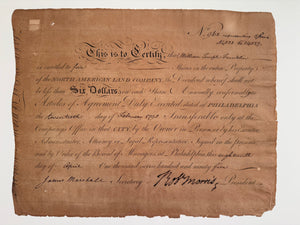 This is to Certify, that William Temple Franklin
is entitled to
Shares in the entire Property
of the NORTH AMERICAN LAND COMPANY, the Dividend whereof shall not
be less than Six Dollars on each Share Annually, conformably to
Articles of Agreement Duly Executed, dated at PHILADELPHIA
the twentieth day of February 1795. Transferable only at the
Company's Office in that CITY, by the Owner in Person or by his Executor
Administrator, Attorney or Legal Representative. Signed in the presence
and by Order of the Board of Managers, at Philadelphia this
day of April One thousand seven hundred and ninety five
James Marshall Secretary Robt Morris President